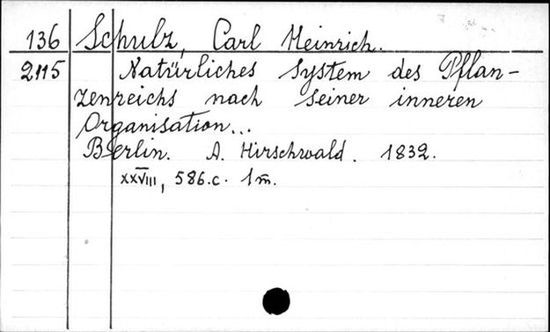 136 Schulz, Carl Heinrich.
2115 Natürliches System des Pflan-
zenreichs nach seiner inneren
Organisation...
Berlin. A. Hirschwald. 1832.
XXVIII, 586.c. 1 m.